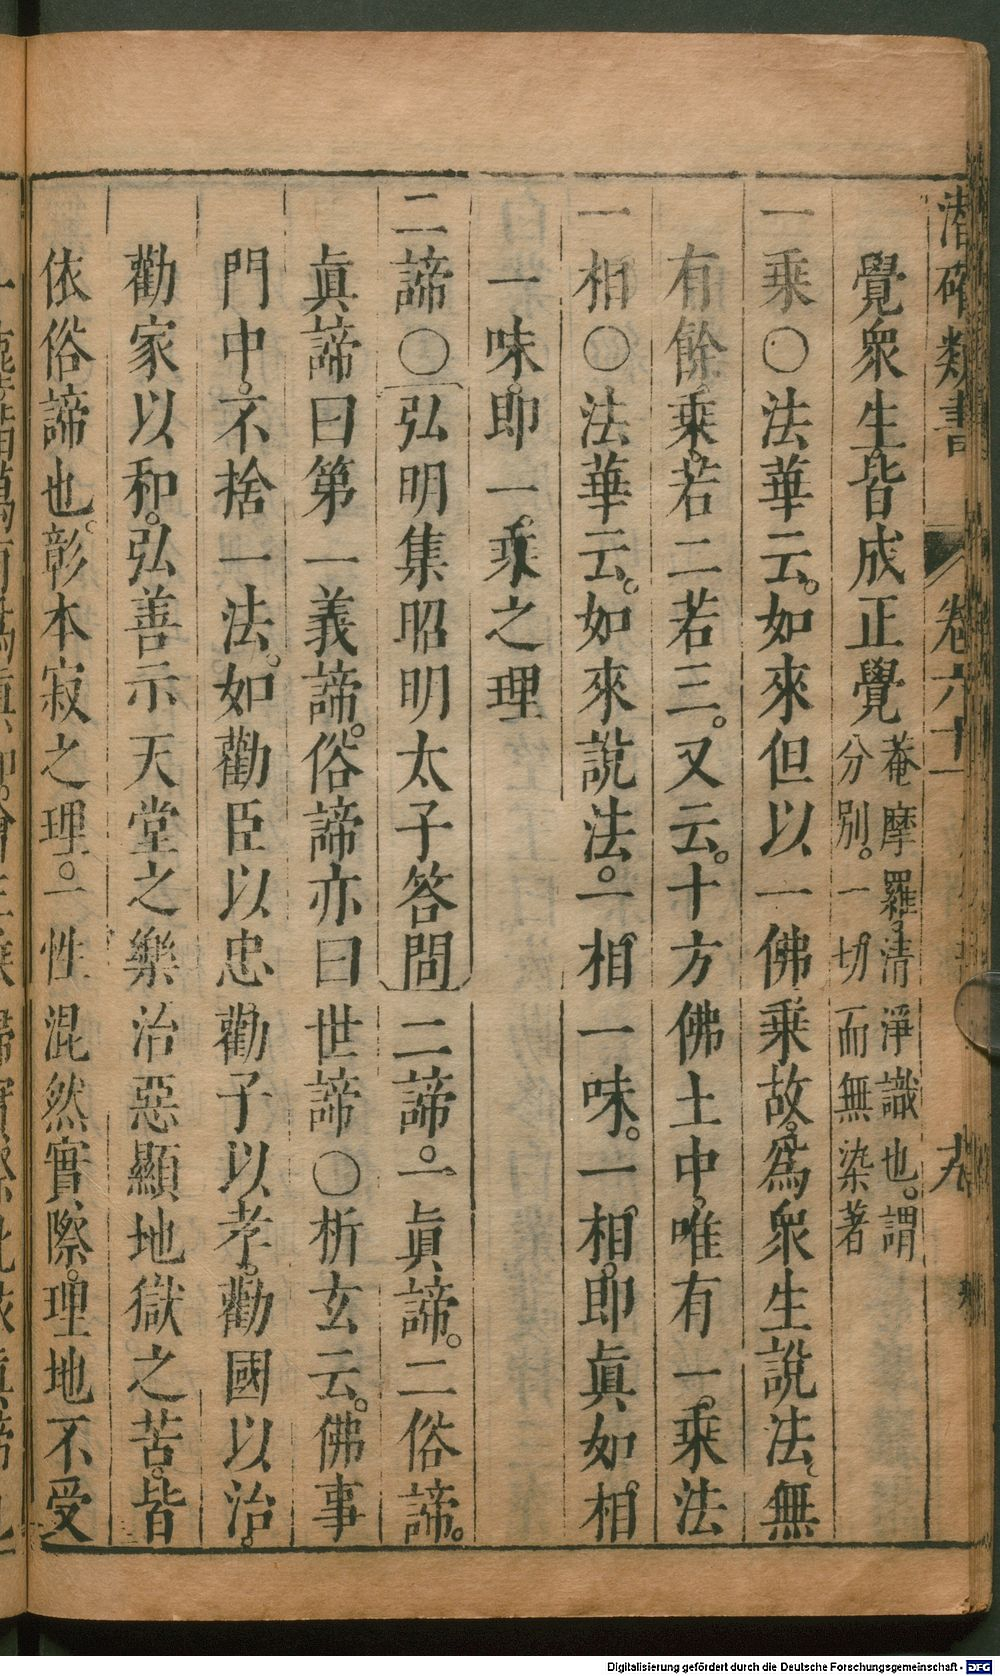 潛確類書 卷六十 九
覺衆生皆成正覺菴摩羅清淨識也。謂
分別。一切而無染著
一乘○法華云。如來但以一佛乘故。爲衆生說法、無
有餘乘。若二若三。又云。十方佛土中。唯有一。乘法
一相○法華云。如來說法。一相一味。一相。即眞如相
一味。即一乘之理
二諦○弘明集昭明太子答問二諦。一眞諦。二俗諦。
眞諦曰第一義諦。俗諦亦曰世諦○析玄云。佛事
門中。不捨一法。如勸臣以忠勸子以孝。勸國以治。
勸家以和。弘善示天堂之樂治惡顯地獄之苦。皆
依俗諦也。彰本寂之理。一性混然實際。理地不受
Digitalisierung gefördert durch die Deutsche Forschungsgemeinschaft - DFG